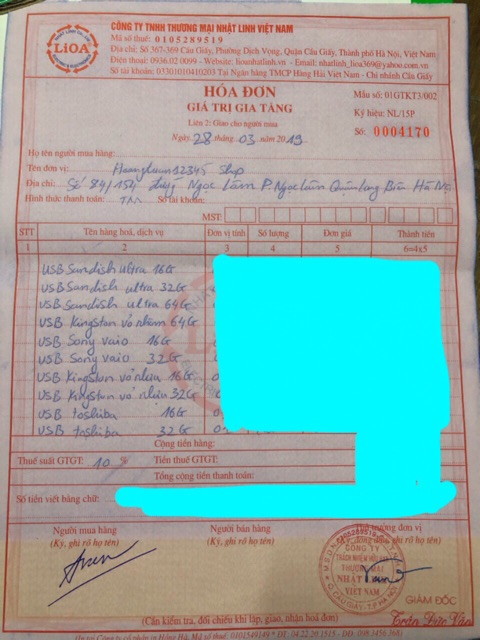 LiOA
CÔNG TY TNHH THƯƠNG MẠI NHẬT LINH VIỆT NAM
Mã số thuế: 0105289519
Địa chỉ: Số 367-369 Cầu Giấy, Phường Dịch Vọng, Quận Cầu Giấy, Thành phố Hà Nội, Việt Nam
Điện thoại: 0936.02 0099 - Website: lioanhatlinh.vn - Email: nhatlinh_lioa369@yahoo.com.vn
Số tài khoản: 03301010410203 Tại Ngân hàng TMCP Hàng Hải Việt Nam - Chi nhánh Cầu Giấy
HÓA ĐƠN
GIÁ TRỊ GIA TĂNG
Liên 2: Giao cho người mua
Ngày 28 tháng 03 năm 2019
Mẫu số: 01GTKT3/002
Ký hiệu: NL/15P
Số: 0004170
Họ tên người mua hàng:
Tên đơn vị: Hoangtuan12345 Shop
Địa chỉ: Số 84/154 Ngọc Lâm P. Ngọc Lâm Quận Long Biên Hà Nội
Hình thức thanh toán: TM Số tài khoản:
MST:
STT Tên hàng hoá, dịch vụ Đơn vị tính Số lượng Đơn giá Thành tiền
1 2 3 4 5 6=4x5
USB Sandish ultra 16G
USB Sandish ultra 32G
USB Sandish ultra 64G
USB Kingston vỏ nhôm 64G
USB Sony vaio 16G
USB Sony vaio 32G
USB Kingston vỏ nhựa 16G
USB Kingston vỏ nhựa 32G
USB toshiba 16G
USB toshiba 32G
Cộng tiền hàng:
Thuế suất GTGT: 10 % Tiền thuế GTGT:
Tổng cộng tiền thanh toán:
Số tiền viết bằng chữ:
Người mua hàng Người bán hàng Thủ trưởng đơn vị
(Ký, ghi rõ họ tên) (Ký, ghi rõ họ tên)
CÔNG TY
TRÁCH NHIỆM HỮU HẠN
THƯƠNG MẠI
NHẬT LINH
VIỆT NAM
Q. CẦU GIẤY - T.P HÀ NỘI
GIÁM ĐỐC
Trần Đức Vân
(Cần kiểm tra, đối chiếu khi lập, giao, nhận hoá đơn)